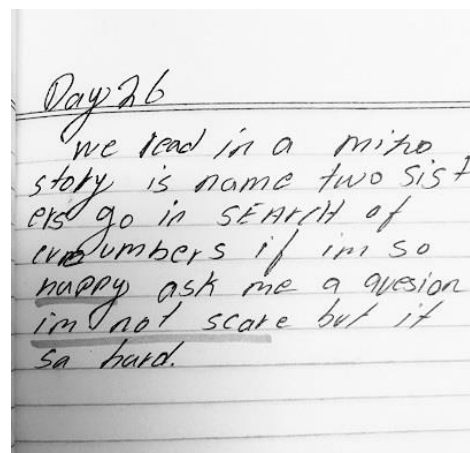 Day 26
we read in a mitho
story is name two sist
ers go in SEArCH of
umbers if im so
happy ask me a quesion
im not scare but it
sa hard.